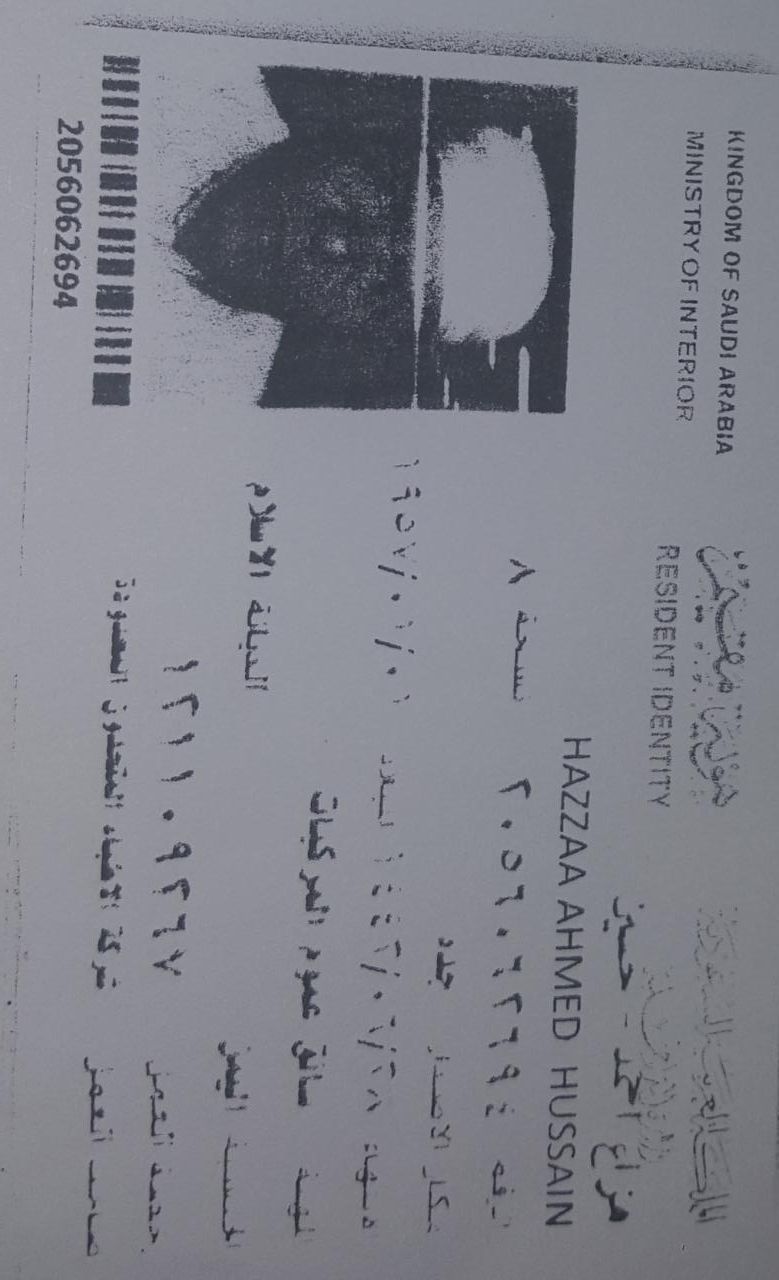 KINGDOM OF SAUDI ARABIA
MINISTRY OF INTERIOR
هوية مقيم
RESIDENT IDENTITY
المملكة العربية السعودية
وزارة الداخلية
هزاع احمد - حسين
HAZZAA AHMED HUSSAIN
٢٠٥٦٠٦٢٦٩٤ نسخة ٨
مكان الاصدار جدة
١٤٤٢/٠٦/٢٨ الميلاد ١٩٥٧/٠١/٠١
المهنة سائق عموم المركبات
الجنسية اليمن الديانة الاسلام
١٢١١٠٩٢٦٧
صاحب العمل شركة الاطباء المتحدون المحدودة
2056062694